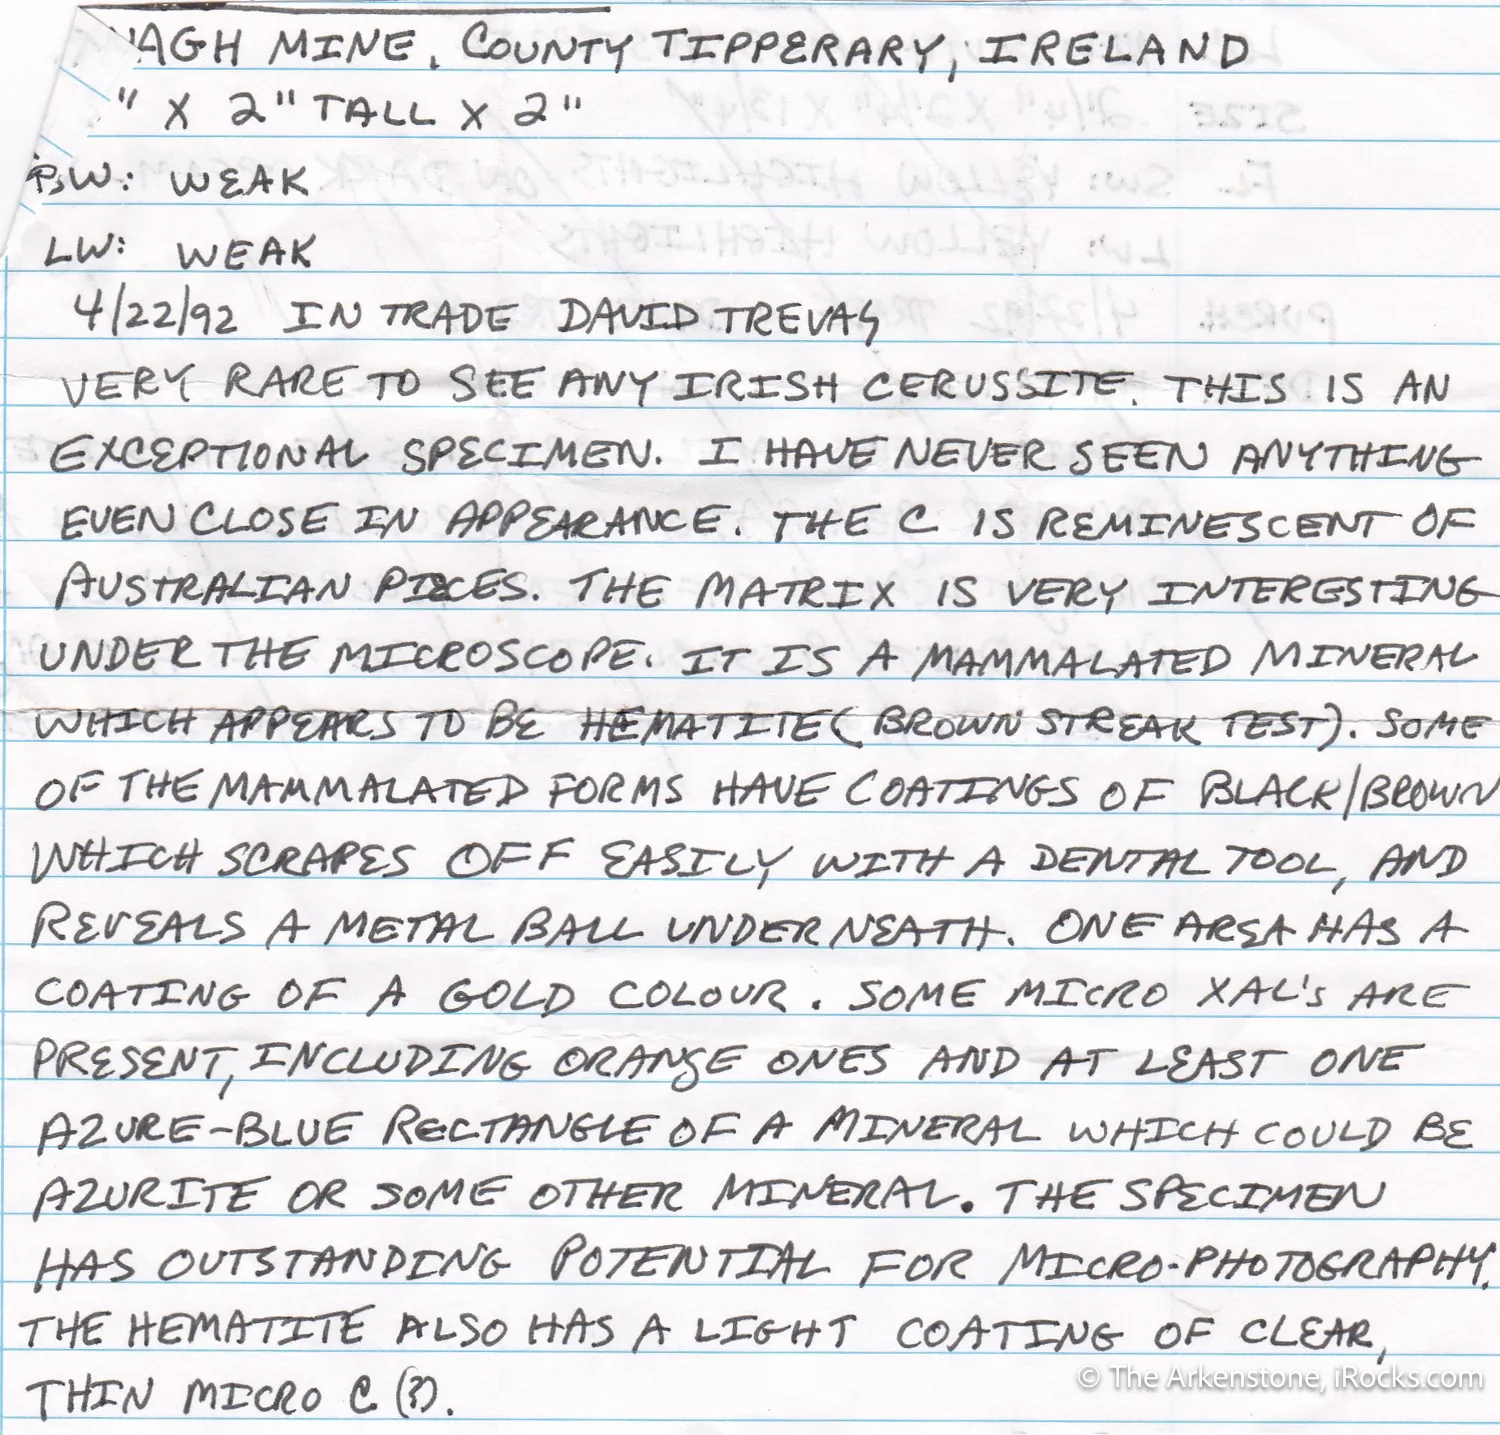 AGH MINE, COUNTY TIPPERARY, IRELAND
" X 2" TALL X 2"
SW: WEAK
LW: WEAK
4/22/92 IN TRADE DAVID TREVAS
VERY RARE TO SEE ANY IRISH CERUSSITE. THIS IS AN
EXCEPTIONAL SPECIMEN. I HAVE NEVER SEEN ANYTHING
EVEN CLOSE IN APPEARANCE. THE C IS REMINESCENT OF
AUSTRALIAN PIECES. THE MATRIX IS VERY INTERESTING
UNDER THE MICROSCOPE. IT IS A MAMMALATED MINERAL
WHICH APPEARS TO BE HEMATITE (BROWN STREAK TEST). SOME
OF THE MAMMALATED FORMS HAVE COATINGS OF BLACK/BROWN
WHICH SCRAPES OFF EASILY WITH A DENTAL TOOL, AND
REVEALS A METAL BALL UNDERNEATH. ONE AREA HAS A
COATING OF A GOLD COLOUR. SOME MICRO XAL'S ARE
PRESENT, INCLUDING ORANGE ONES AND AT LEAST ONE
AZURE-BLUE RECTANGLE OF A MINERAL WHICH COULD BE
AZURITE OR SOME OTHER MINERAL. THE SPECIMEN
HAS OUTSTANDING POTENTIAL FOR MICRO-PHOTOGRAPHY.
THE HEMATITE ALSO HAS A LIGHT COATING OF CLEAR,
THIN MICRO C (?).
© The Arkenstone, iRocks.com